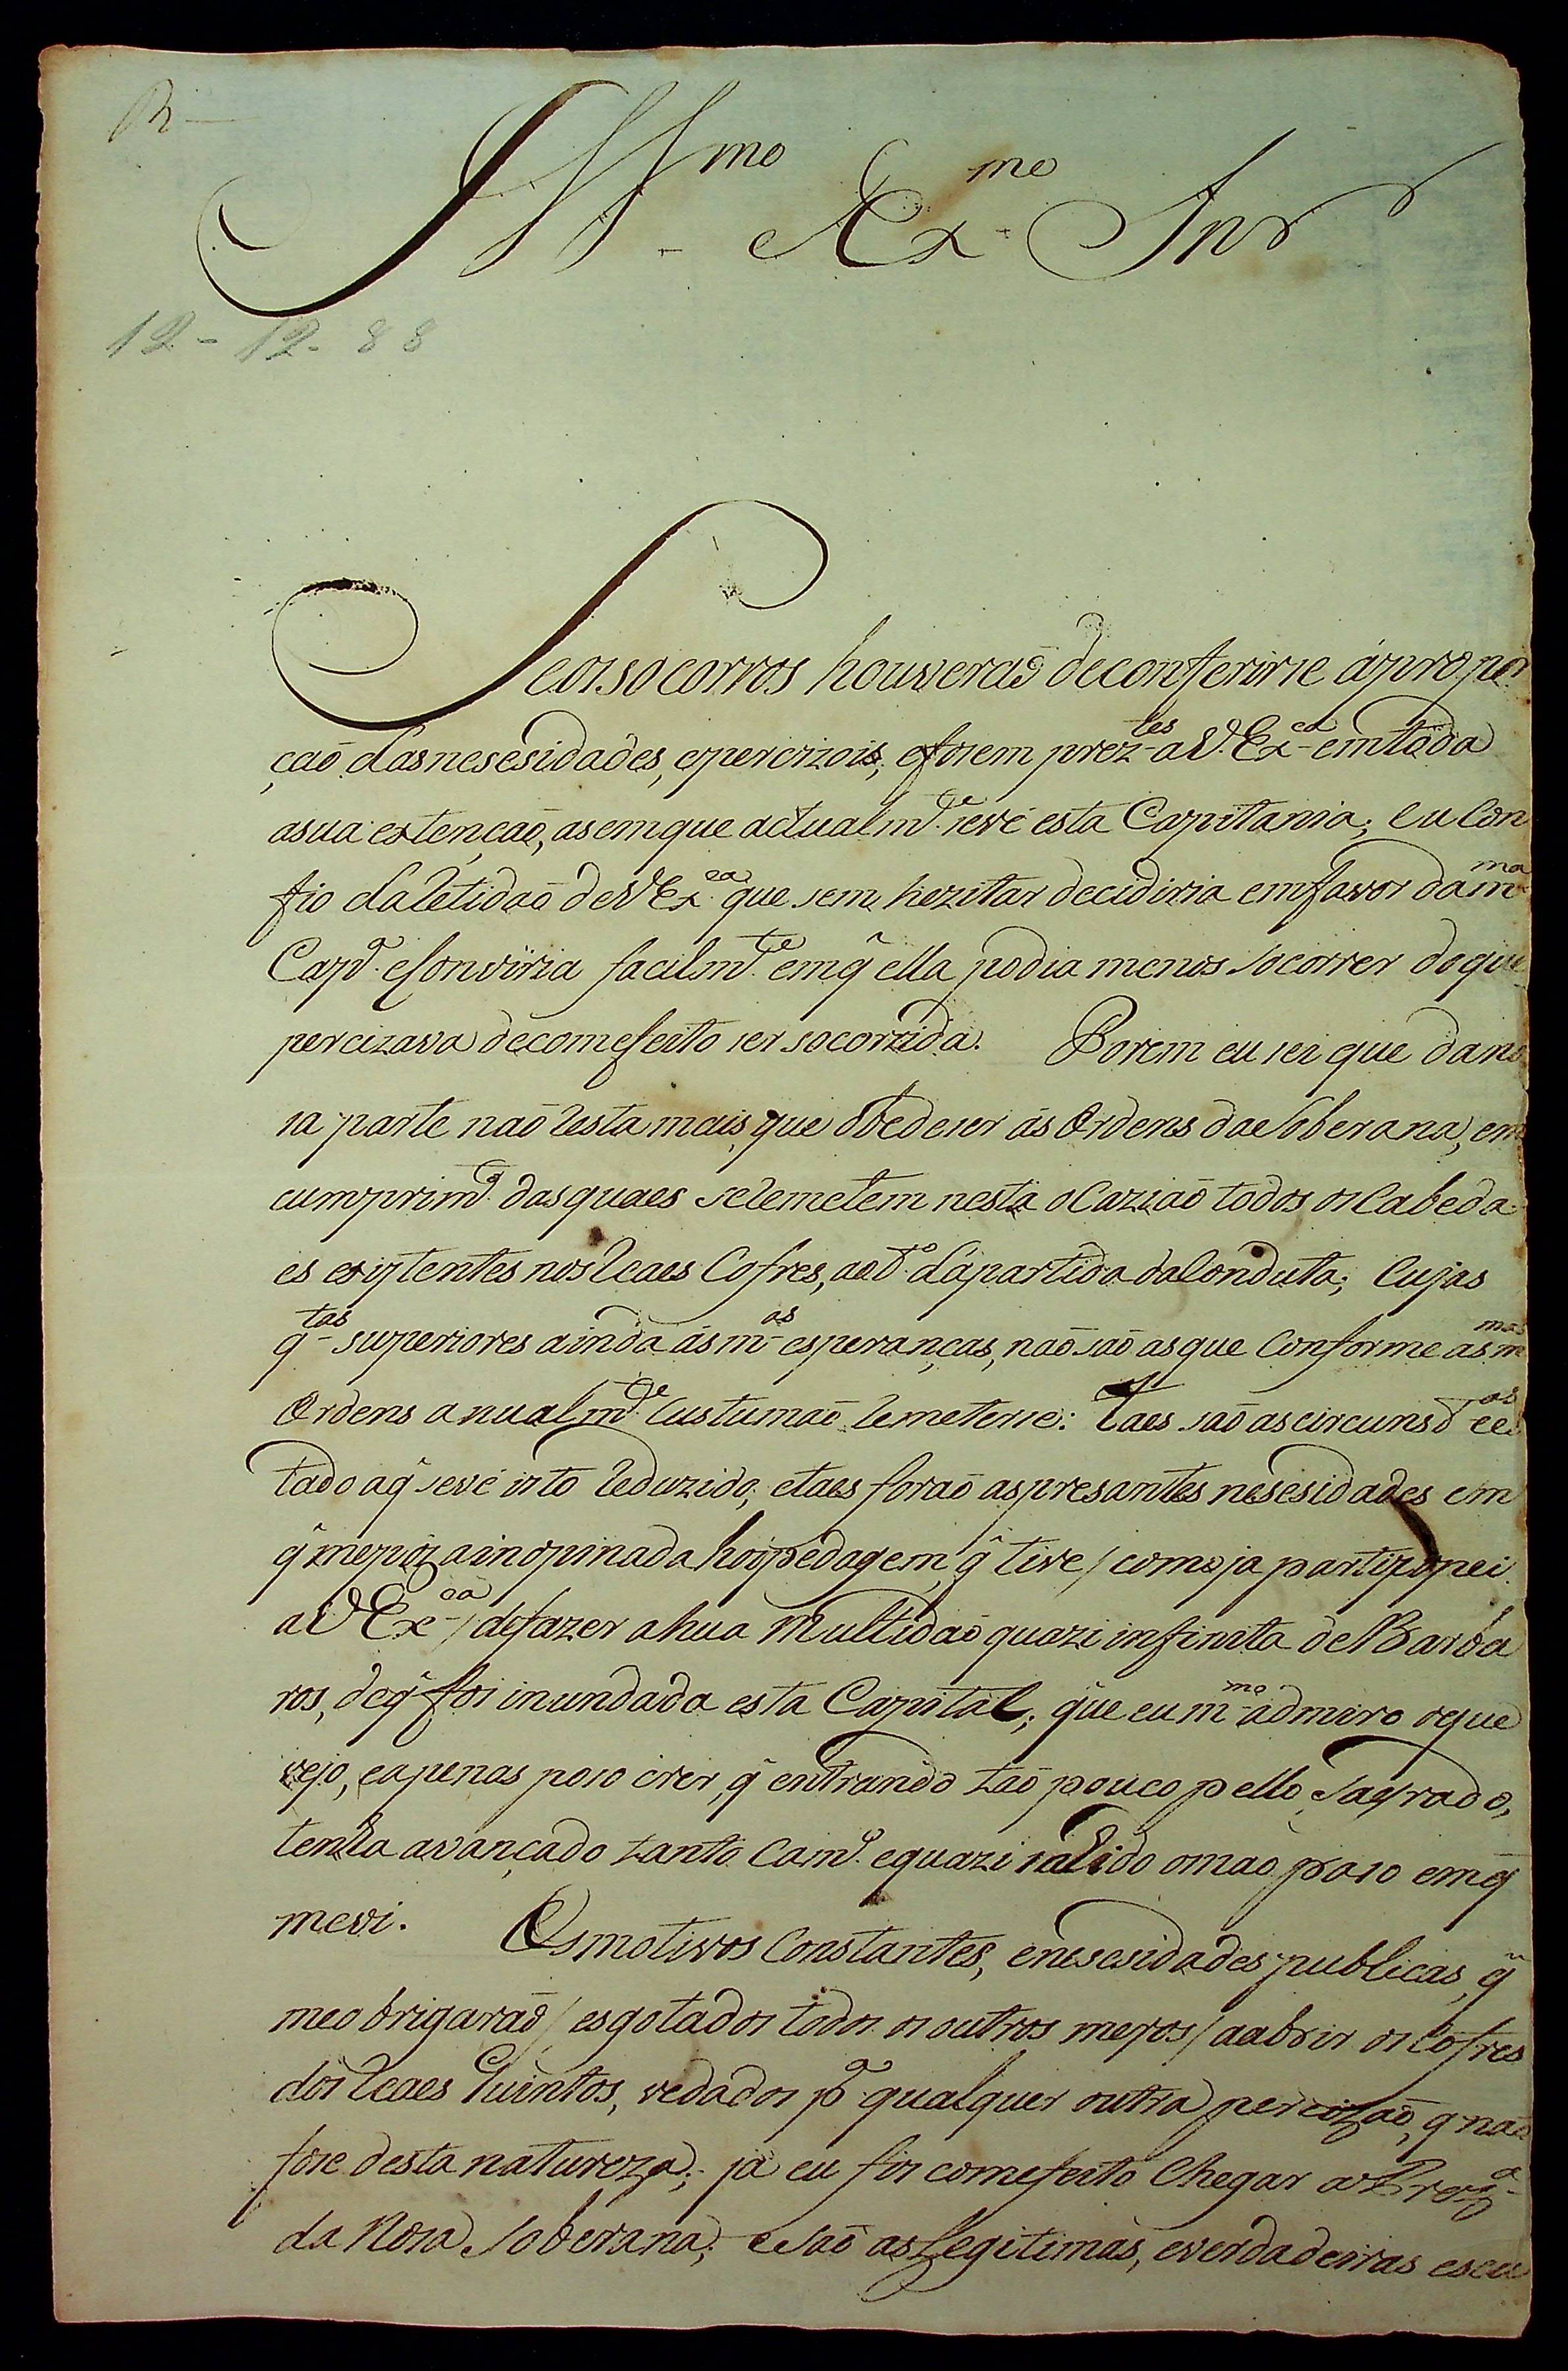 R.
Ill.mo Ex.mo Snr
12-12-88
Se os socorros houverão de conferirse á propor
ção das nesesidades, e percizois, e fosem prez.tes a V. Ex.ca em toda
a sua extenção, as em que actualm.te se vé esta Capitania; eu Con
fio da Retidão de V Ex.ca que sem hezitar decidiria em favor da m.ma
Cap.a e Conviria facilm.te em q̃ ella podia menos socorrer do que
percizava de com efeito ser socorrida. Porem eu sei que da no
sa parte não Resta mais, que obedeser ás Ordens da Soberana, em
cumprim.to das quaes se Remetem nesta ocazião todos os Cabeda
es existentes nos Reaes Cofres, ao t.o da partida da Conduta; Cujas
q.tas superiores ainda ás m.as esperanças, não são as que Conforme as m.mas
Ordens anualm.te Custumão Remeterse: Taes são as circunst.as e es
tado a q̃ se vé isto Reduzido; e taes forão as presantes nesesidades em
q̃ me poz a inopinada hospedagem, q̃ tive / como ja partizipei
a V Ex.ca / de fazer a hua Multidão quazi infinita de Barba
ros, de q̃ foi inundada esta Capital; que eu m.mo admiro o que
vejo, e apenas poso crer, q̃ entrando tão pouco pello Sagrado,
tenha avançado tanto Cam.o e quazi salido o mao paso em q̃
me vi. Os motivos Constantes, e nesesidades publicas, q̃
me obrigarão / esgotados todos os outros meyos / a abrir os Cofres
dos Reaes Quintos, vedados p.a qualquer outra percizão, q̃ não
fose desta natureza; já eu fis com efeito Chegar a Prez.a
da Nosa Soberana; e São as Legitimas, e verdadeiras escu